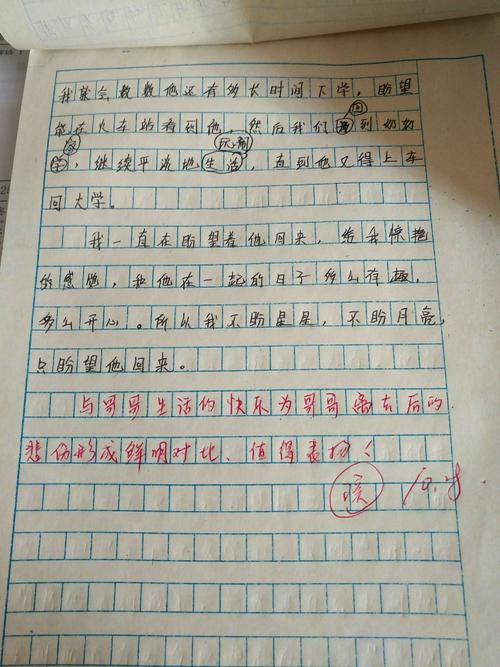 我就会数数他还有多长时间大学，盼望
能在火车站看到他，然后我们回到奶奶
家，继续平淡地生活，直到他又得上车
回大学。
我一直在盼望着他回来，给我惊艳
的感觉，和他在一起的日子多么有趣，
多么开心。所以我不盼星星，不盼月亮，
只盼望他回来。
与哥哥生活的快乐为哥哥离去后的
悲伤形成鲜明对比，值得表扬！
10.28